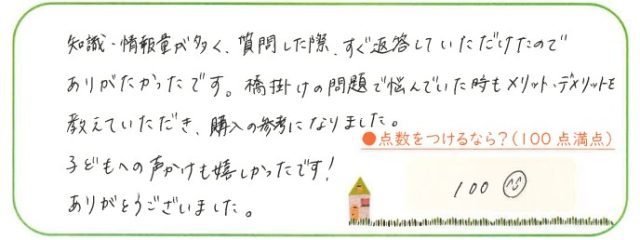 知識・情報量が多く、質問した際、すぐ返答していただけたので
ありがたかったです。橋掛けの問題で悩んでいた時もメリット・デメリットを
教えていただき、購入の参考になりました。
子どもへの声かけも嬉しかったです!
ありがとうございました。
●点数をつけるなら?(100点満点)
100